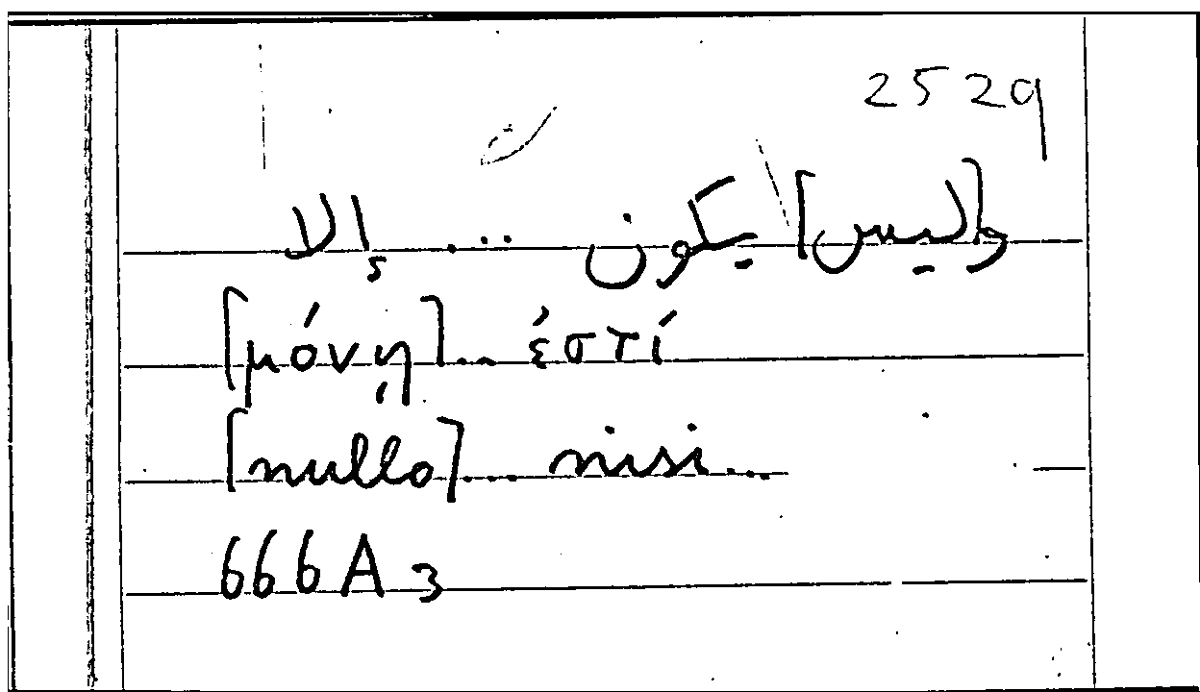 2529
[وليس] يكون ... إلا
[μόνῃ]... ἐστί
[nullo]... nisi...
666A3